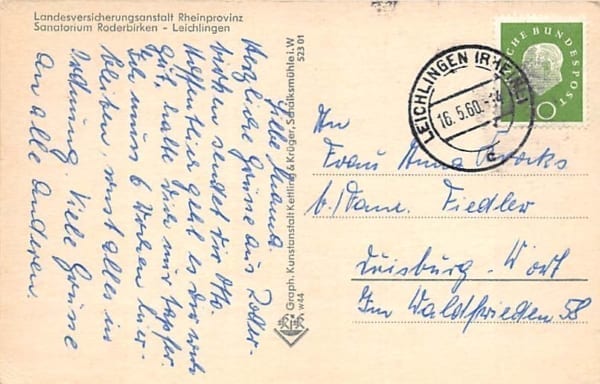 Landesversicherungsanstalt Rheinprovinz
Sanatorium Roderbirken - Leichlingen
Liebe Mama.
Herzliche Grüsse aus Roder-
birken sendet dir Otto.
Hoffentlich geht es dir noch
gut, halte dich nur tapfer.
Ich muss 6 Wochen hier-
bleiben, sonst alles in
Ordnung. Viele Grüsse
an alle anderen.
Graph. Kunstanstalt Kettling & Krüger, Schalksmühle i.W
523 01
w44
LEICHLINGEN (RHEINL)
16.5.60.
c
CHE BUNDESPOST
10
An
Frau Anna
b/Fam. Fiedler
Duisburg - Wort
Im Waldfrieden 58